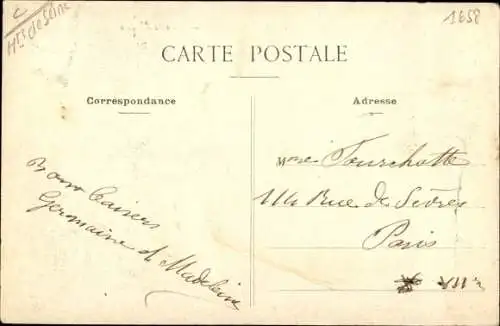 C
Hts de Seine
1658
CARTE POSTALE
Correspondance
Adresse
Bons baisers
Germaine et Madeleine
Mme Fourchotte
114 Rue de Sèvres
Paris